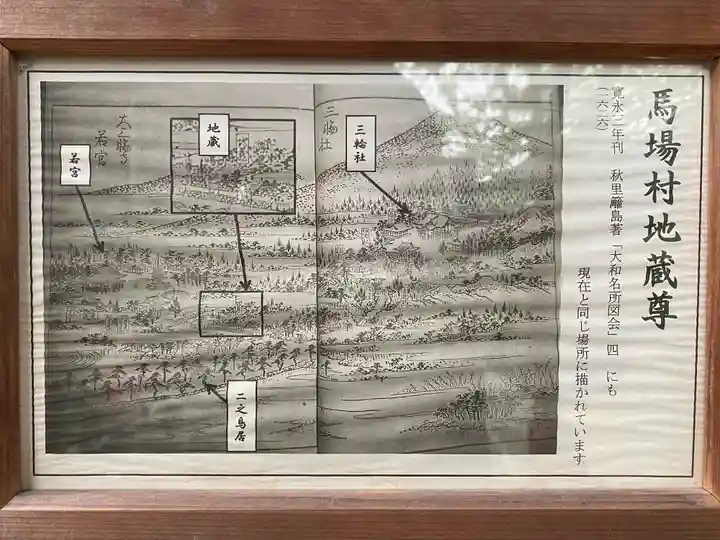 馬場村地蔵尊
寛永三年刊　秋里籬島著「大和名所図会」四　にも
(一六二六)
現在と同じ場所に描かれています
三輪社
三輪社
地蔵
若宮
若宮
二之鳥居